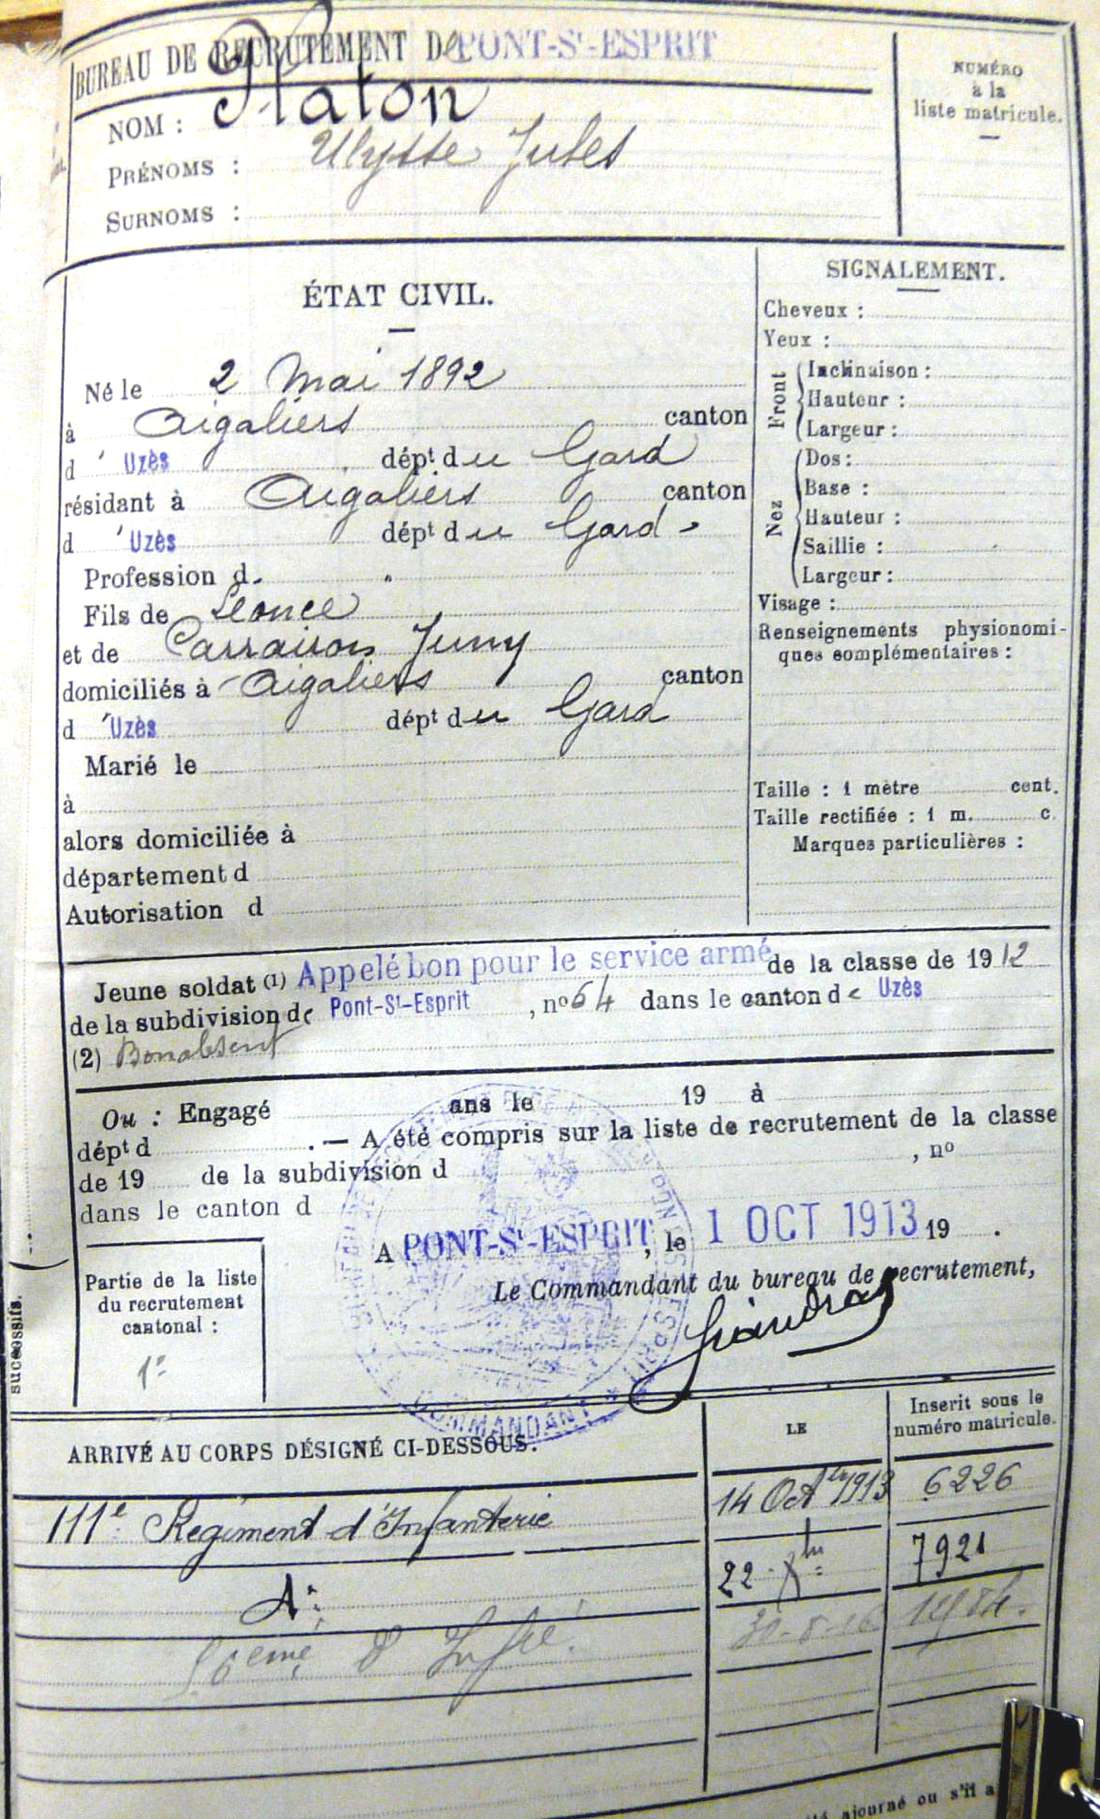 BUREAU DE RECRUTEMENT De PONT-St-ESPRIT
NUMÉRO
à la
liste matricule.
NOM : Platon
PRÉNOMS : Ulysse Jules
SURNOMS :
ÉTAT CIVIL.
Né le 2 Mai 1892
à Aigaliers canton
d' Uzès dépt du Gard
résidant à Aigaliers canton
d' Uzès dépt du Gard
Profession d
Fils de Léonce
et de Juny
domiciliés à Aigaliers canton
d' Uzès dépt du Gard
Marié le
à
alors domiciliée à
département d
Autorisation d
SIGNALEMENT.
Cheveux :
Yeux :
Front
Inclinaison :
Hauteur :
Largeur :
Nez
Dos :
Base :
Hauteur :
Saillie :
Largeur :
Visage :
Renseignements physionomi-
ques complémentaires :
Taille : 1 mètre cent.
Taille rectifiée : 1 m. c.
Marques particulières :
Jeune soldat (1) Appelé bon pour le service armé de la classe de 1912
de la subdivision de Pont-St-Esprit, no 64 dans le canton de Uzès
(2) Bon absent
Ou : Engagé ans le 19 à
dépt d . — A été compris sur la liste de recrutement de la classe
de 19 de la subdivision d , no
dans le canton d
A PONT-St-ESPRIT, le 1 OCT 1913 19 .
Le Commandant du bureau de recrutement,
COMMANDANT
Partie de la liste
du recrutement
cantonal :
1e
successifs.
ARRIVÉ AU CORPS DÉSIGNÉ CI-DESSOUS. LE Inscrit sous le
numéro matricule.
111e Régiment d'Infanterie 14 Octbre 1913 6226
do 22 Xbre 7921
30-8-16
ajourné ou s'il a